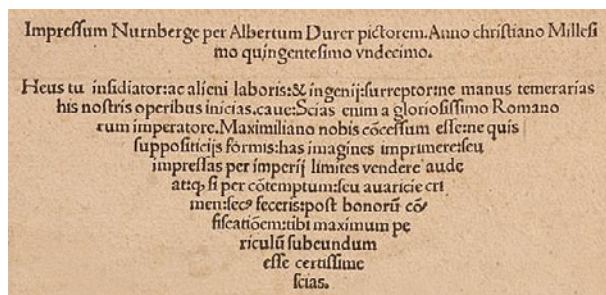 Impreſſum Nurnberge per Albertum Durer pictorem.Anno chriſtiano Milleſi
mo quingenteſimo vndecimo.
Heus tu inſidiator:ac alieni laboris:& ingenij:ſurreptor:ne manus temerarias
his noſtris operibus inicias.caue:Scias enim a glorioſiſſimo Romano
rum imperatore.Maximiliano nobis cõceſſum eſſe:ne quis
ſuppoſiticijs formis:has imagines imprimere:ſeu
impreſſas per imperij limites vendere aude
at:ꝙ ſi per cõtemptum:ſeu auaricie cri
men:ſecꝰ feceris:poſt bonorũ cõ
fiſcatiõem:tibi maximum pe
riculũ ſubeundum
eſſe certiſſime
ſcias.